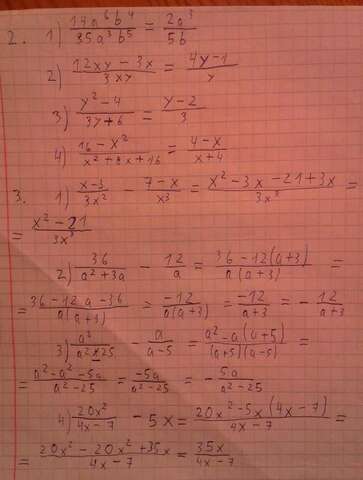 2. 1) 14a⁶b⁴/35a³b⁵ = 2a³/5b
2) 12xy - 3x/3xy = 4y-1/y
3) y²-4/3y+6 = y-2/3
4) 16-x²/x²+8x+16 = 4-x/x+4
3. 1) x-3/3x² - 7-x/x³ = x²-3x-21+3x/3x³ =
= x²-21/3x³
2) 36/a²+3a - 12/a = 36-12(a+3)/a(a+3) =
= 36-12a-36/a(a+3) = -12/a(a+3) = -12/a+3 = - 12/a+3
3) a²/a²-25 - a/a-5 = a²-a(a+5)/(a+5)(a-5) =
= a²-a²-5a/a²-25 = -5a/a²-25 = - 5a/a²-25
4) 20x²/4x-7 - 5x = 20x²-5x(4x-7)/4x-7 =
= 20x²-20x²+35x/4x-7 = 35x/4x-7